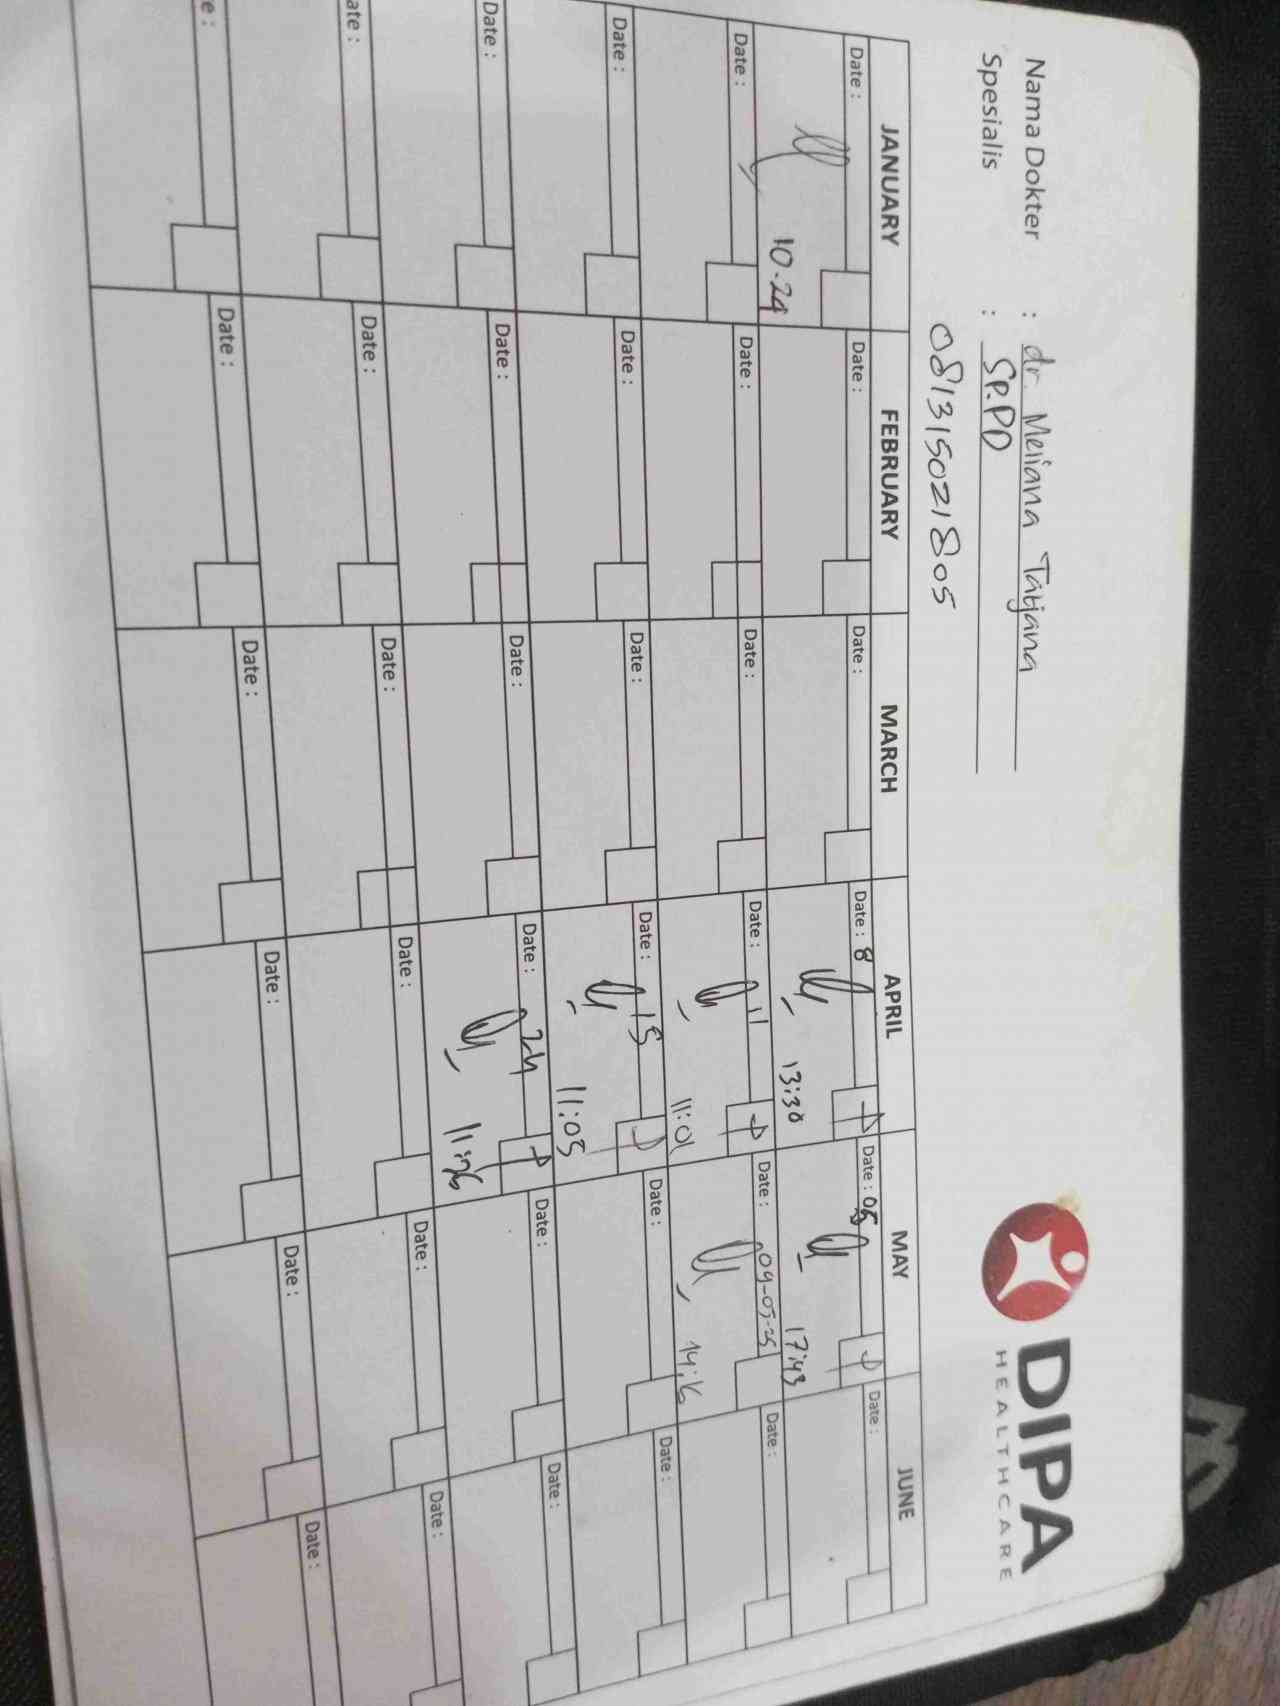 DIPA
HEALTHCARE
Nama Dokter : dr. Meliana Tatjana
Spesialis : SP.PD
081315021805
JANUARY FEBRUARY MARCH APRIL MAY JUNE
Date : Date : Date : Date : 8 Date : 05 Date :
10.24 13:30 17:43
Date : Date : Date : Date : 11 Date : 09-05-25 Date :
11:01
Date : Date : Date : Date : 15 Date : Date :
11:05
Date : Date : Date : Date : 24 Date : Date :
ate : Date : Date : Date : Date : Date :
e : Date : Date : Date : Date : Date :